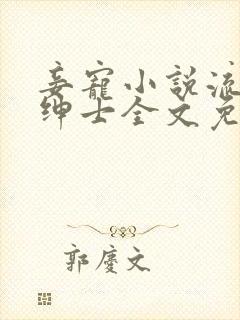 妾寵小說流
紳士全文免
郭慶文